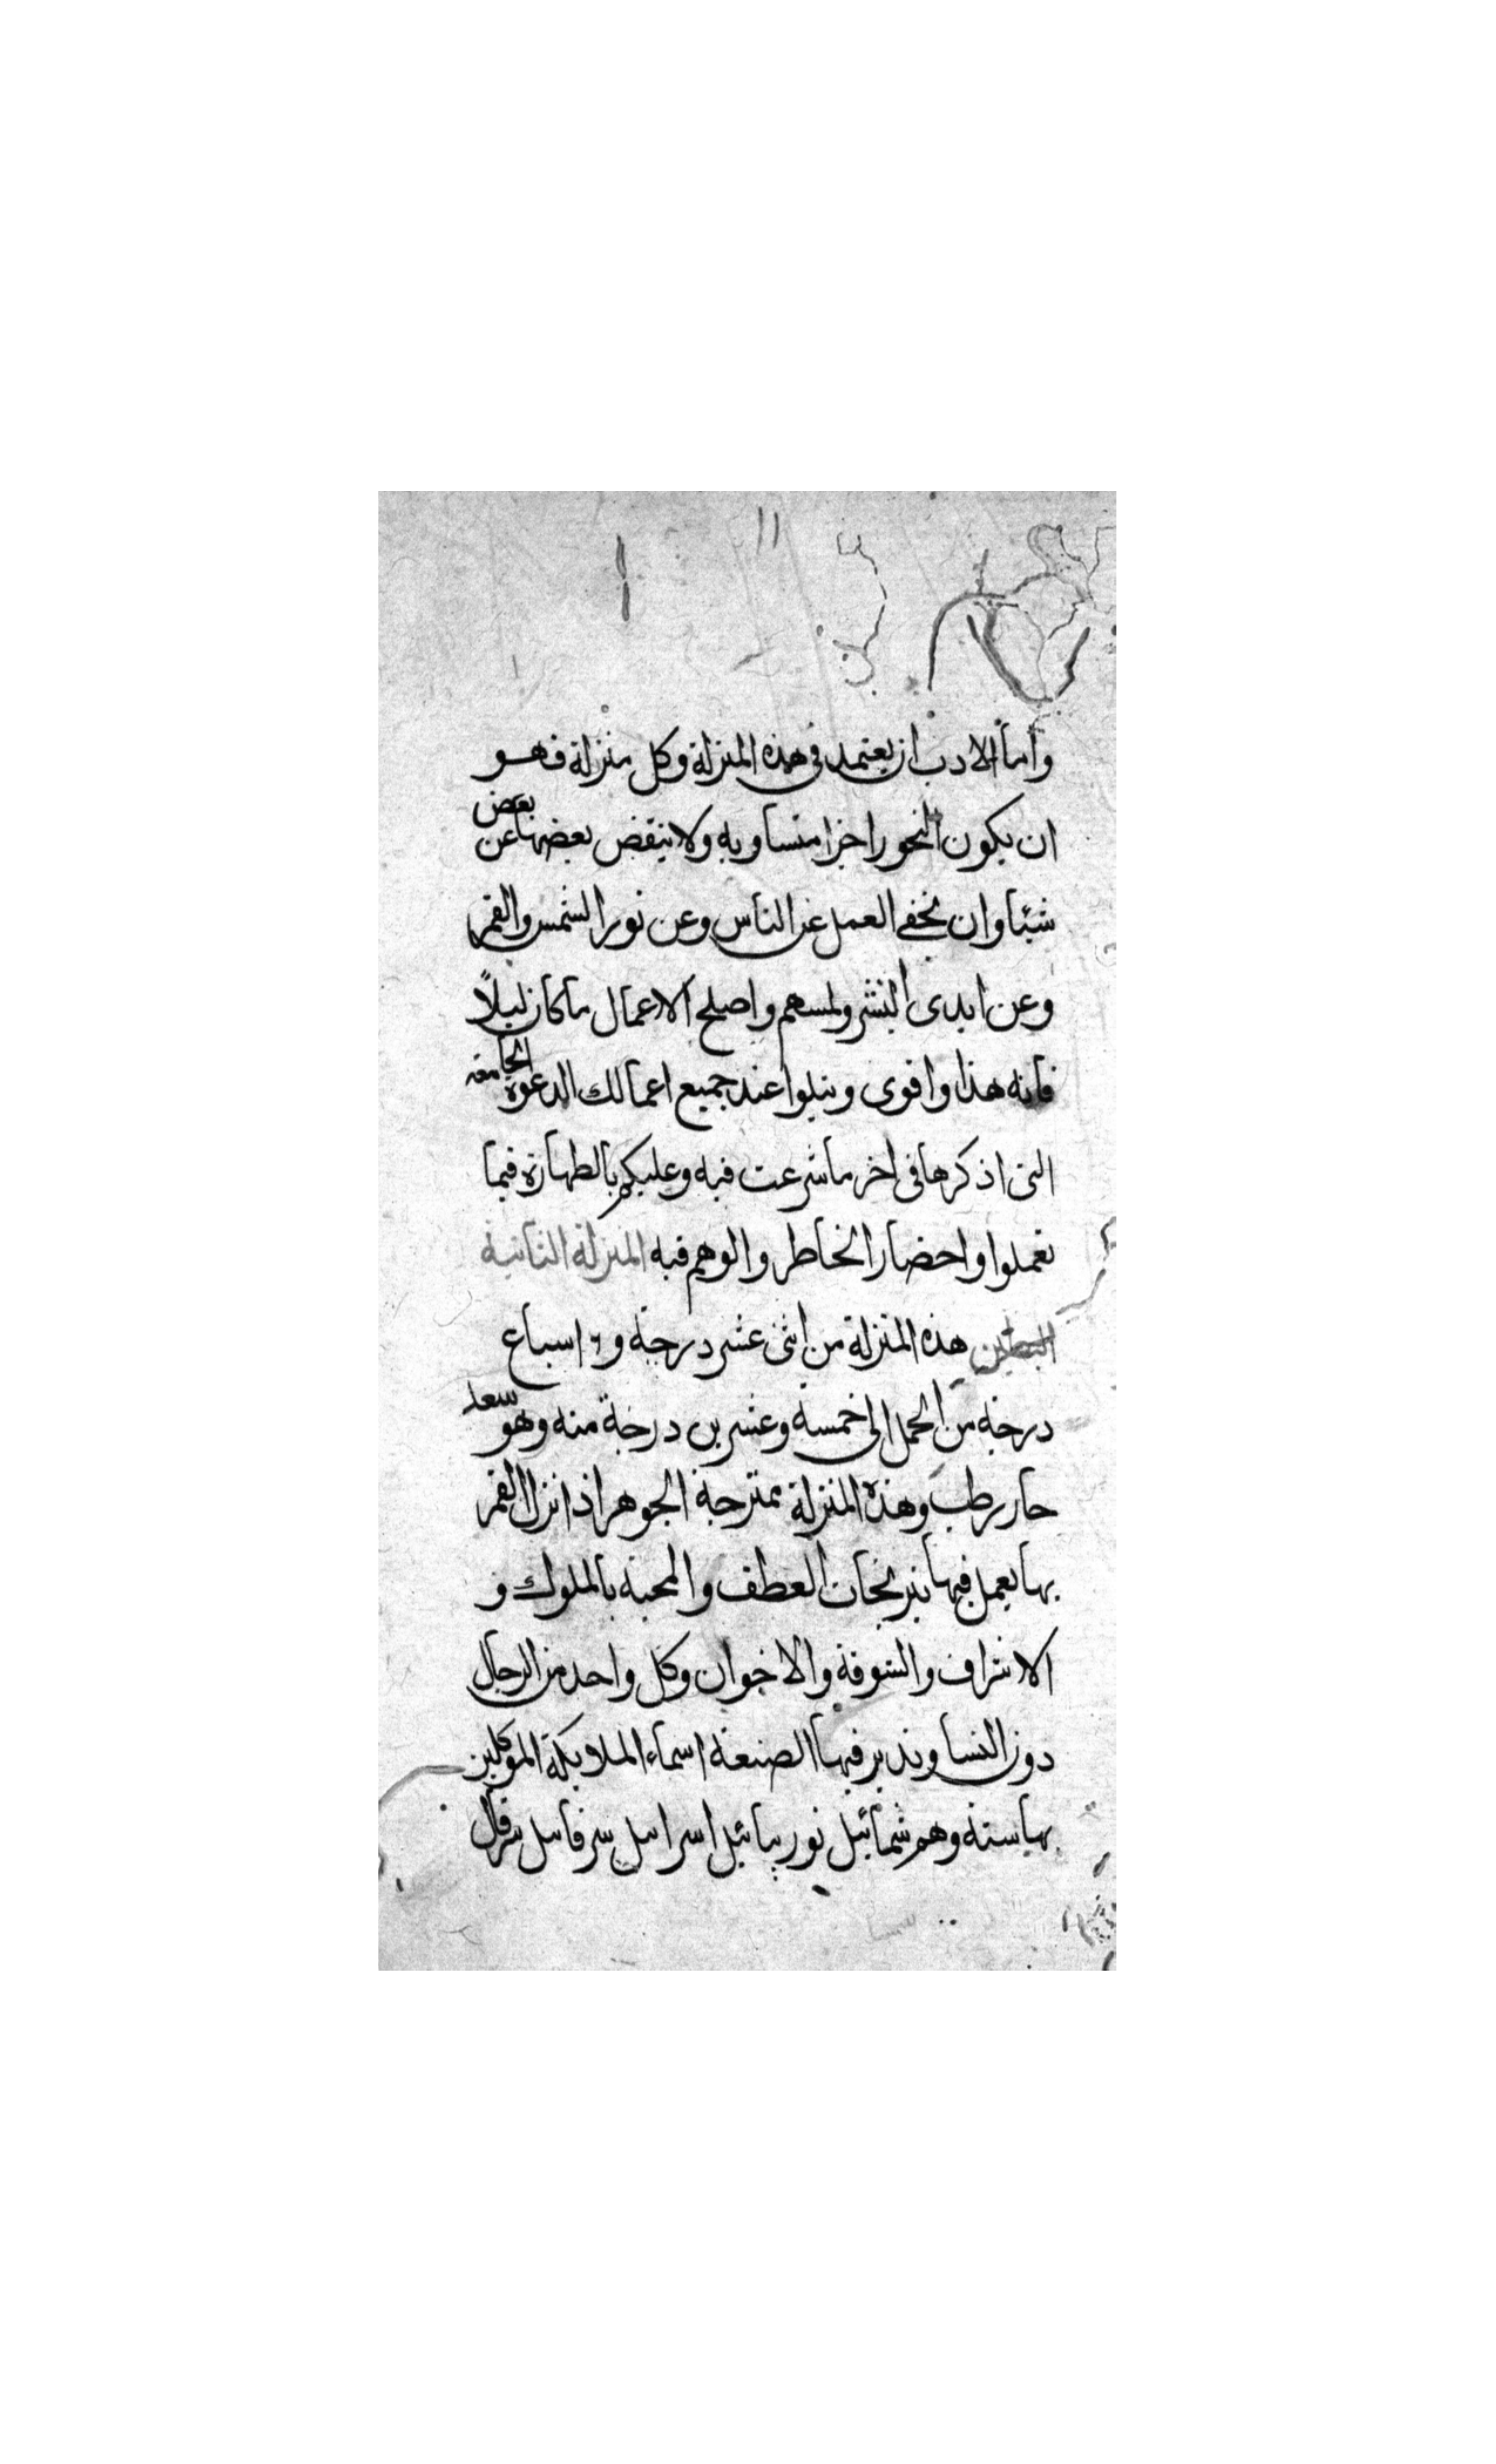 واما الادب ان يعتمد في هذه المنزلة وكل منزلة فهو
ان يكون البخور اجزا متساويه ولا ينقض بعضها عن بعض
شيئا وان يخفي العمل عن الناس وعن نور الشمس والقمر
وعن ايدى البشر ولمسهم واصلح الاعمال ما كان ليلاً
فانه هذا واقوى ويتلوا عند جميع اعمالك الدعوة الجامعه
التى اذكرها فى اخر ما شرعت فيه وعليكم بالطهارة فيما
تعملوا واحضار الخاطر والوهم فيه المنزلة الثانية
البطين هذه المنزلة من اثنى عشر درجة و٦ اسباع
درجة من الحمل الى خمسة وعشرين درجة منه وهو سعد
حار رطب وهذه المنزلة ممتزجة الجوهر اذا نزل القمر
بها يعمل فيها نيرنجات العطف والمحبة بالملوك و
الاشراف والسوقة والاخوان وكل واحد من الرجال
دون النسا وتدبر فيها الصنعة اسماء الملايكة الموكلين
بها ستة وهم شمائيل نوريائيل اسراىىل سرفاىىل